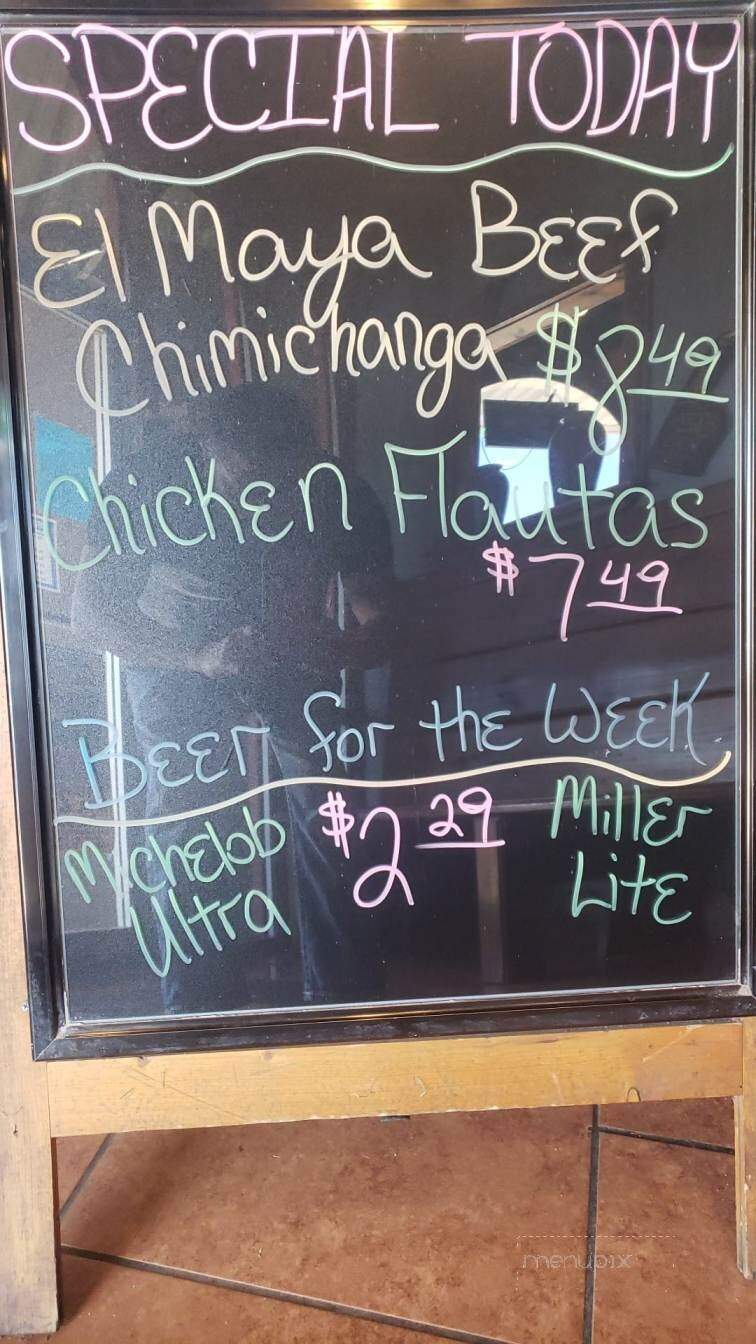 SPECIAL TODAY
El Maya Beef
Chimichanga $8 49
Chicken Flautas
$7 49
Beer for the Week.
Michelob $2 29 Miller
Ultra Lite
menupix